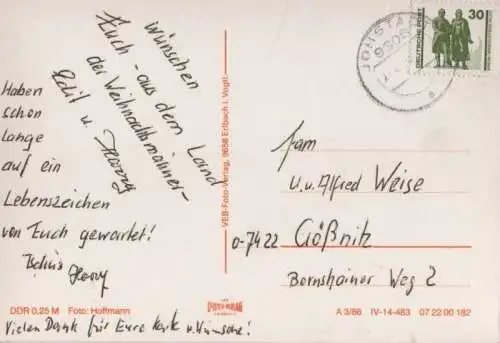 wünschen
Euch - aus dem Land
der Weihnachtsmänner-
u. Harry
Haben
schon
lange
auf ein
Lebenszeichen
von Euch gewartet!
Harry
DDR 0,25 M Foto: Hoffmann
Vielen Dank für Eure Karte u. Wünsche!
VEB-Foto-Verlag, 9658 Erlbach i. Vogtl.
FOTO-VERLAG
30
DEUTSCHE POST
Fam
u. Alfred Weise
0-7422 Gößnitz
Bornshainer Weg 2
A 3/86 IV-14-483 07 22 00 182